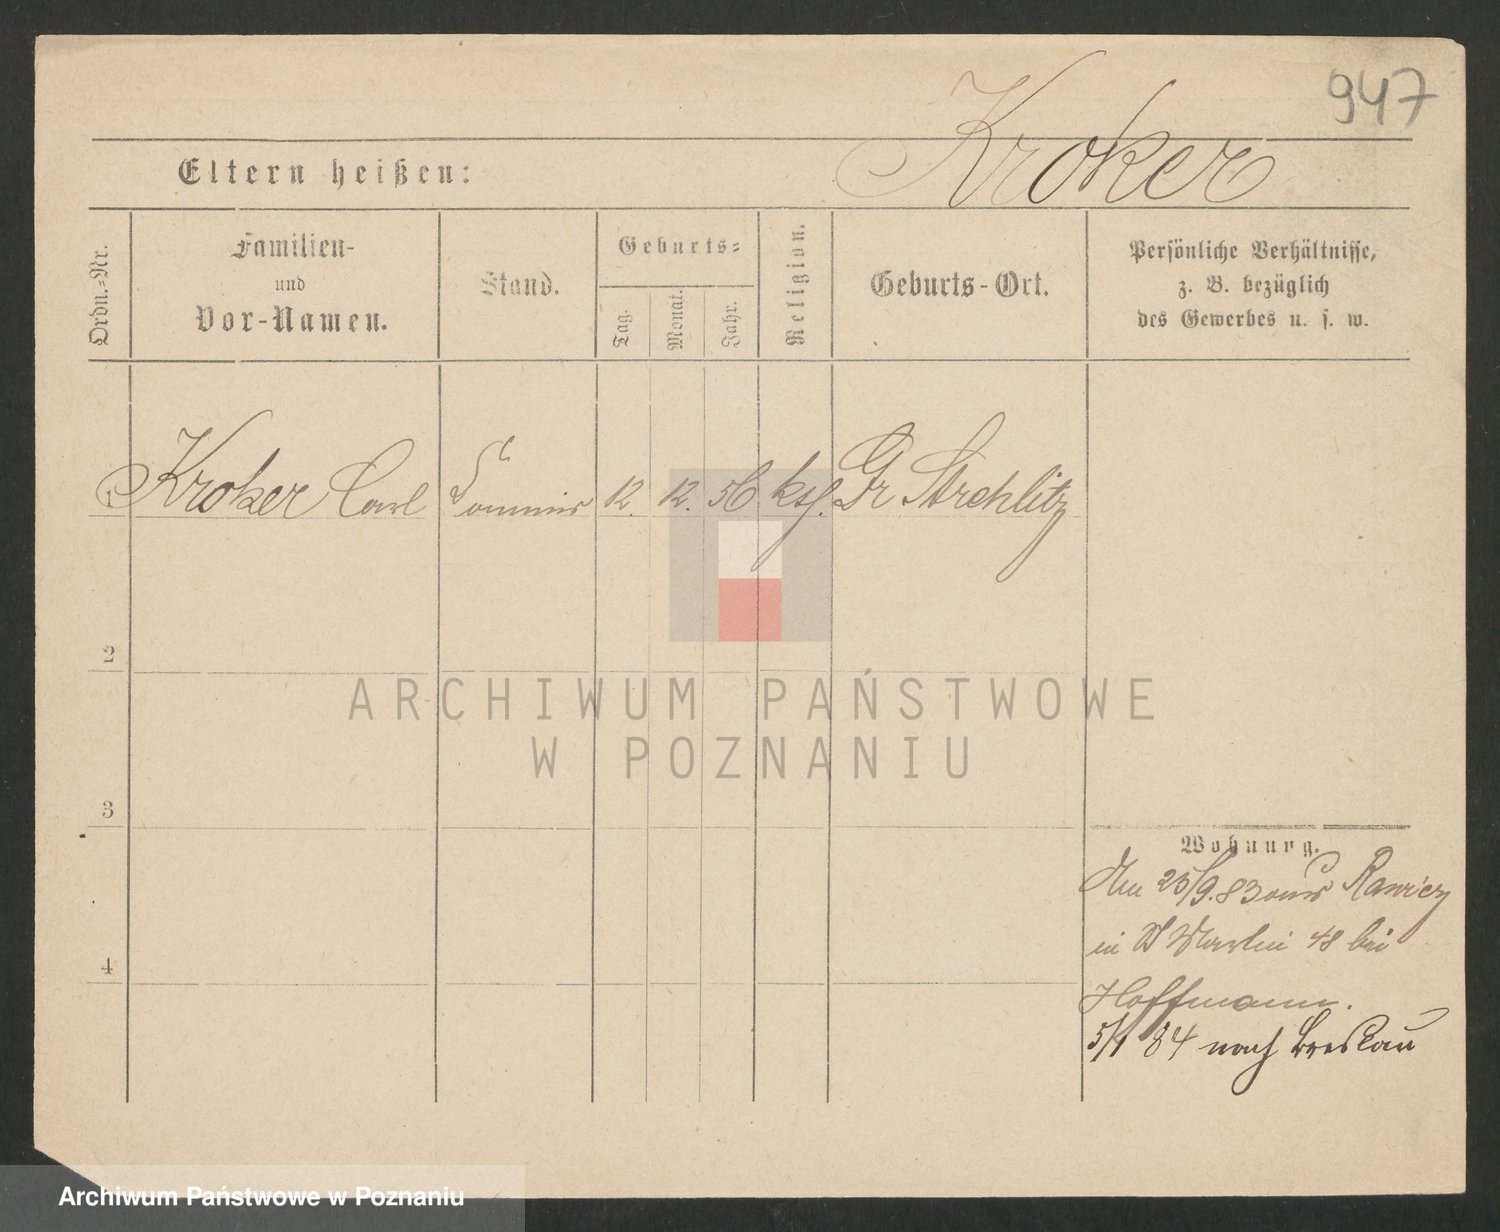 947
Kroker
Eltern heißen:
Ordn.-Nr.
Familien-
und
Vor-Namen.
Stand.
Geburts-
Tag.
Monat.
Jahr.
Religion.
Geburts-Ort.
Persönliche Verhältnisse,
z. B. bezüglich
des Gewerbes u. s. w.
1 Kroker Carl Commis 12. 12. 56 kth. Gr Strehlitz
2
ARCHIWUM PAŃSTWOWE
W POZNANIU
3
Wohnung.
Am 25/9. 83 aus Rawicz
in St Martin 48 bei
4
Hoffmann.
5/1 84 nach Breslau
Archiwum Państwowe w Poznaniu